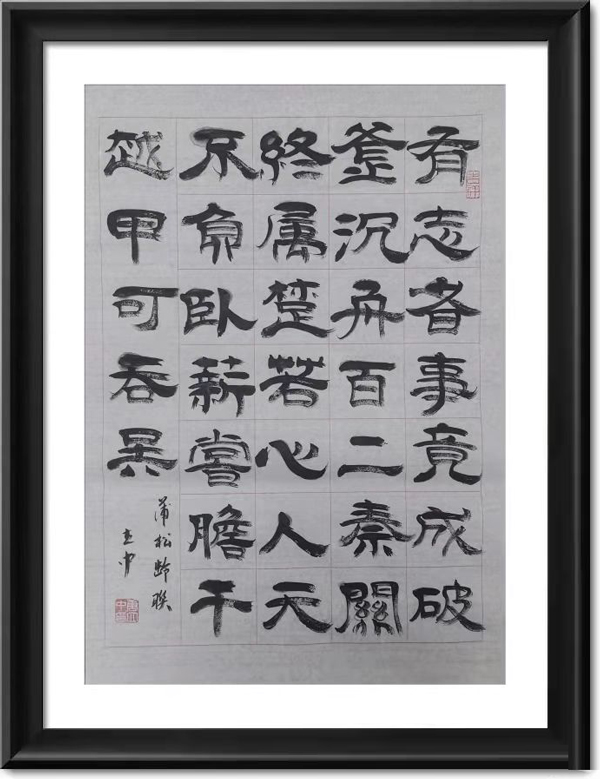 有志者事竟成破
釜沉舟百二秦關
終属楚苦心人天
不負臥薪嘗膽千
越甲可吞吴
蒲松齡聯
立中